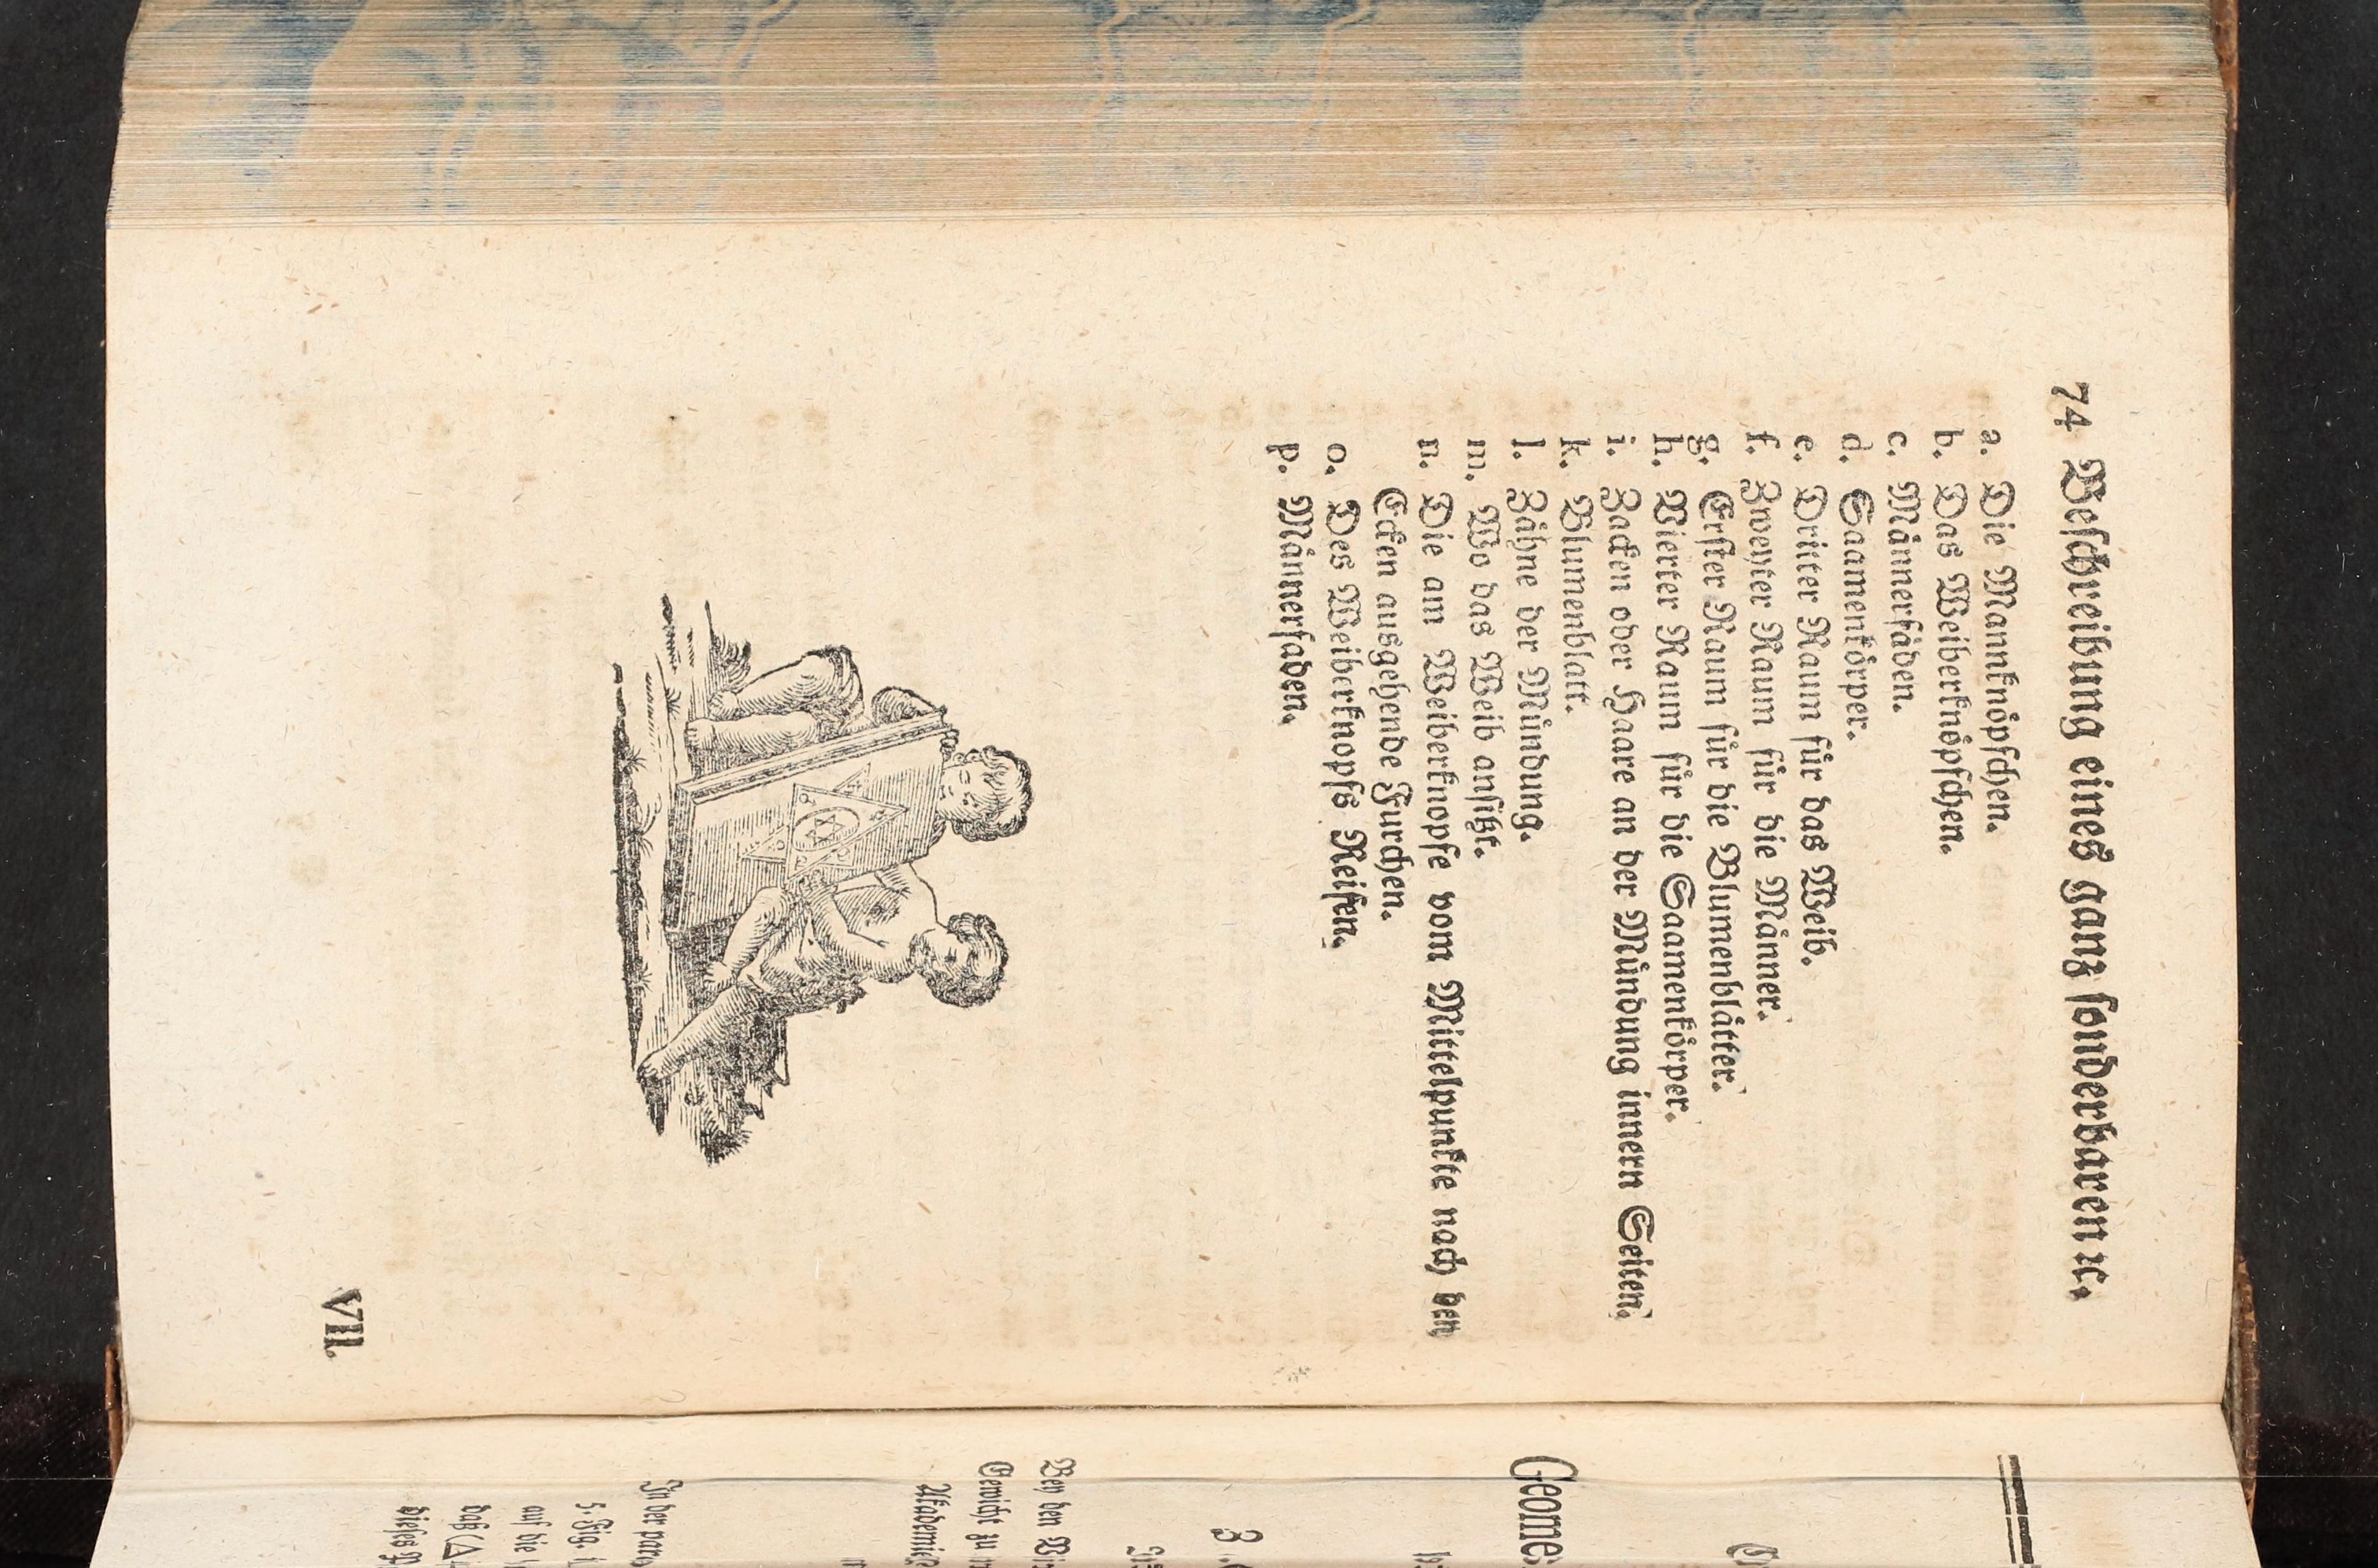 74 Beschreibung eines ganz sonderbaren ꝛc.
a. Die Mannknöpfchen.
b. Das Weiberknöpfchen.
c. Männerfäden.
d. Saamenkörper.
e. Dritter Raum für das Weib.
f. Zweyter Raum für die Männer.
g. Erster Raum für die Blumenblätter.
h. Vierter Raum für die Saamenkörper.
i. Zacken oder Haare an der Mündung innern Seiten.
k. Blumenblatt.
l. Zähne der Mündung.
m. Wo das Weib ansitzt.
n. Die am Weiberknopfe vom Mittelpunkte nach den
Ecken ausgehende Furchen.
o. Des Weiberknopfs Reifen.
p. Männerfaden.
VII.
Geome
3.
Bey den
Gewicht zu
Akademie
In der par
5. Fig.
auf die
daß (Δ
dieses